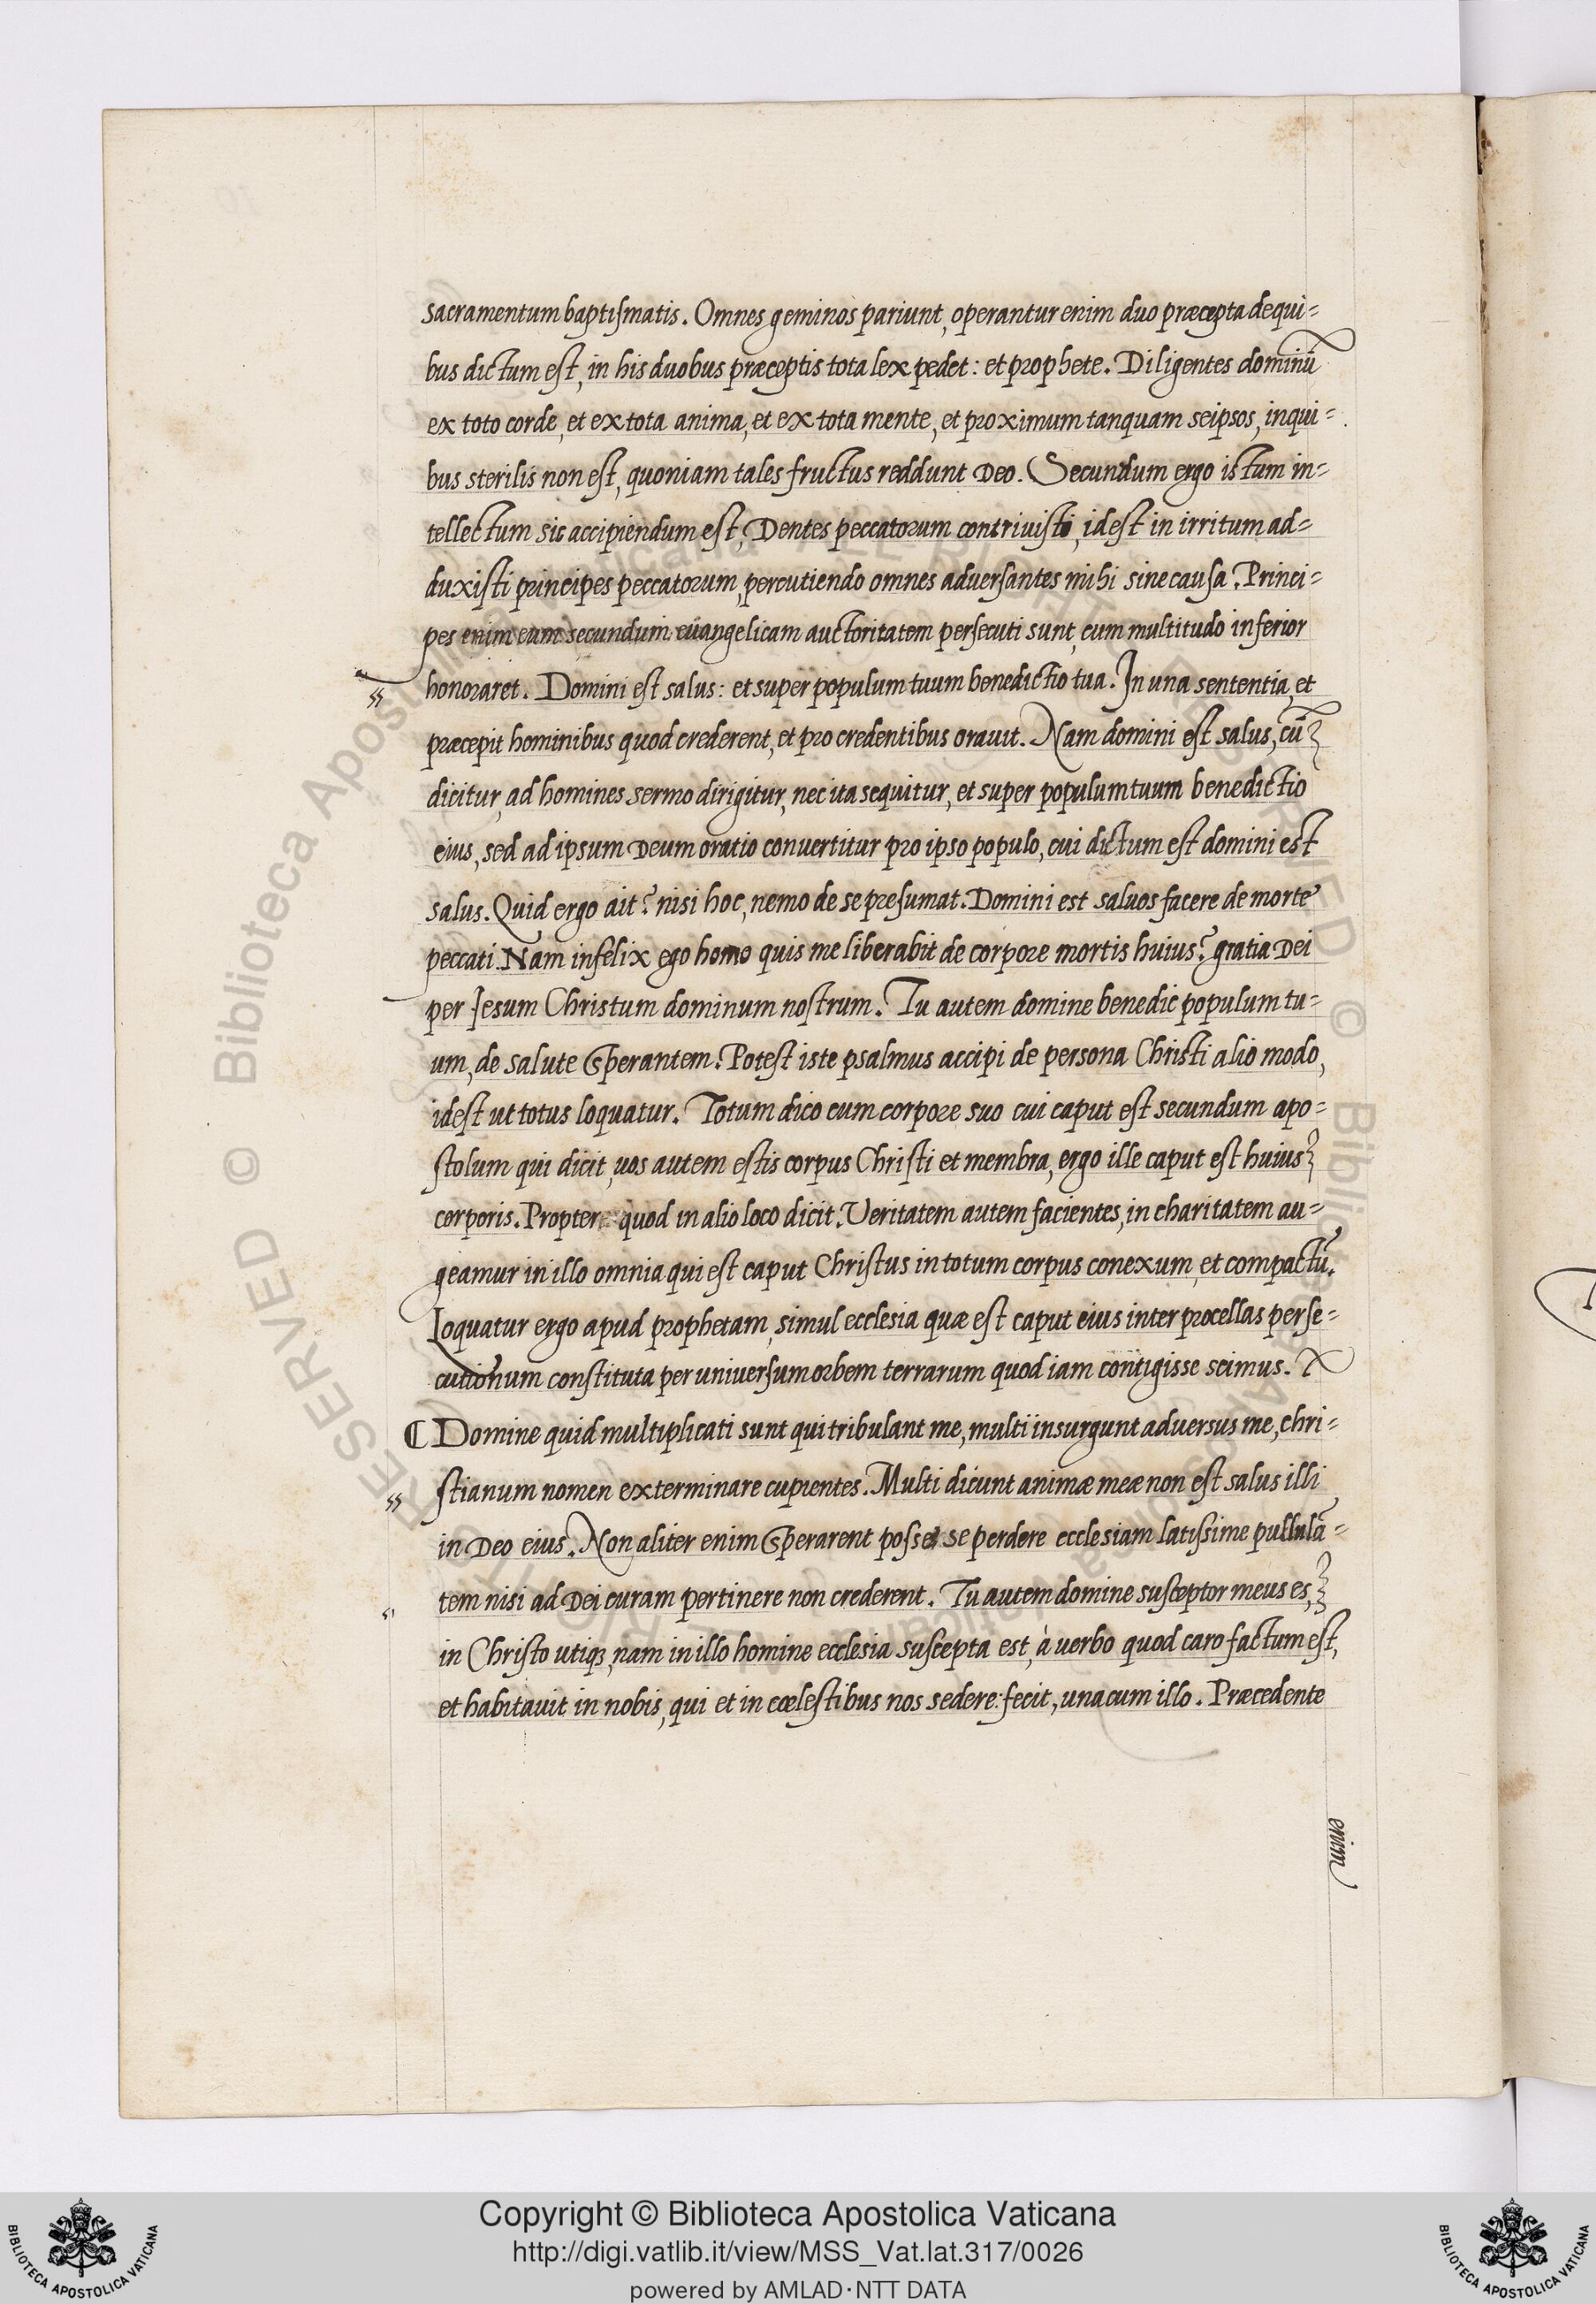 sacramentum baptismatis. Omnes geminos pariunt, operantur enim duo præcepta de qui=
bus dictum est, in his duobus præceptis tota lex pedet: et prophete. Diligentes dominū
ex toto corde, et ex tota anima, et ex tota mente, et proximum tanquam seipsos, in qui=
bus sterilis non est, quoniam tales fructus reddunt Deo. Secundum ergo istum in=
tellectum sic accipiendum est, Dentes peccatorum contrivisti, idest in irritum ad=
duxisti principes peccatorum, percutiendo omnes adversantes mihi sine causa. Princi=
pes enim eum secundum euangelicam auctoritatem persecuti sunt, cum multitudo inferior
honoraret. Domini est salus: et super populum tuum benedictio tua. In una sententia, et
præcepit hominibus quod crederent, et pro credentibus orauit. Nam domini est salus, cū
dicitur, ad homines sermo dirigitur, nec ita sequitur, et super populum tuum benedictio
eius, sed ad ipsum Deum oratio conuertitur pro ipso populo, cui dictum est domini est
salus. Quid ergo ait? nisi hoc, nemo de se presumat. Domini est saluos facere de morte
peccati. Nam infelix ego homo quis me liberabit de corpore mortis huius? gratia Dei
per Iesum Christum dominum nostrum. Tu autem domine benedic populum tu=
um, de salute Sperantem. Potest iste psalmus accipi de persona Christi alio modo,
idest ut totus loquatur. Totum dico cum corpore suo cui caput est secundum apo=
stolum qui dicit, uos autem estis corpus Christi et membra, ergo ille caput est huius
corporis. Propter quod in alio loco dicit. Veritatem autem facientes, in charitatem au=
geamur in illo omnia qui est caput Christus in totum corpus conexum, et compactū.
Loquatur ergo apud prophetam, simul ecclesia quæ est caput eius inter procellas perse=
cutionum constituta per universum orbem terrarum quod iam contigisse scimus.
¶ Domine quid multiplicati sunt qui tribulant me, multi insurgunt adversus me, chri=
stianum nomen exterminare cupientes. Multi dicunt animæ meæ non est salus illi
in Deo eius. Non aliter enim Sperarent posse se perdere ecclesiam latissime pullulā=
tem nisi ad Dei curam pertinere non crederent. Tu autem domine susceptor meus es,
in Christo utiqꝫ, nam in illo homine ecclesia suscepta est, à uerbo quod caro factum est,
et habitauit in nobis, qui et in cœlestibus nos sedere: fecit, una cum illo. Præcedente
enim
Copyright © Biblioteca Apostolica Vaticana
http://digi.vatlib.it/view/MSS_Vat.lat.317/0026
powered by AMLAD·NTT DATA